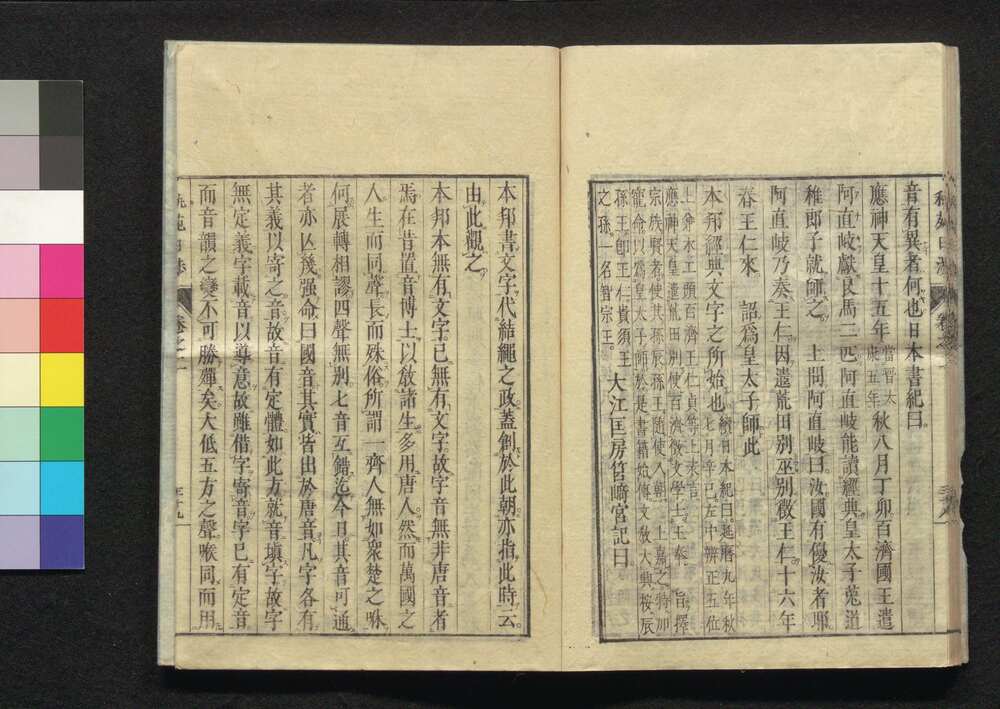 音有異者何也日本書紀曰
應神天皇十五年當晉太康五年秋八月丁卯百濟國王遣
阿直岐獻良馬二匹阿直岐能讀經典皇太子菟道
稚郎子就師之 上問阿直岐曰汝國有優汝者耶
阿直岐乃奏王仁因遣荒田別巫別徵王仁十六年
春王仁來 詔爲皇太子師此
本邦經典文字之所始也續日本紀曰延曆九年秋七月辛巳左中辨正五位
上兼木工頭百濟王仁貞等上表言應神天皇遣荒田別使百濟徵文學士王奉 旨擇
宗族賢者使其孫辰孫王隨使入朝 上嘉之特加寵命以爲皇太子師於是書籍始傳文敎大興按辰
孫王卽王仁貴須王之孫一名智宗王 大江匡房筥﨑宮記曰
本邦書文字代結繩之政蓋創於此朝亦指此時云
由此觀之
本邦本無有文字已無有文字故字音無非唐音者
焉在昔置音博士以敎諸生多用唐人然而萬國之
人生而同聲長而殊俗所謂一齊人無如衆楚之咻
何展轉相謬四聲無別七音互錯迄今日其音可通
者亦亾幾强命曰國音其實皆出於唐音凡字各有
其義以寄之音故音有定體如此方就音塡字故字
無定義字載音以導意故雖借字寄音字已有定音
而音韻之變不可勝殫矣大低五方之聲喉同而用
卷之一